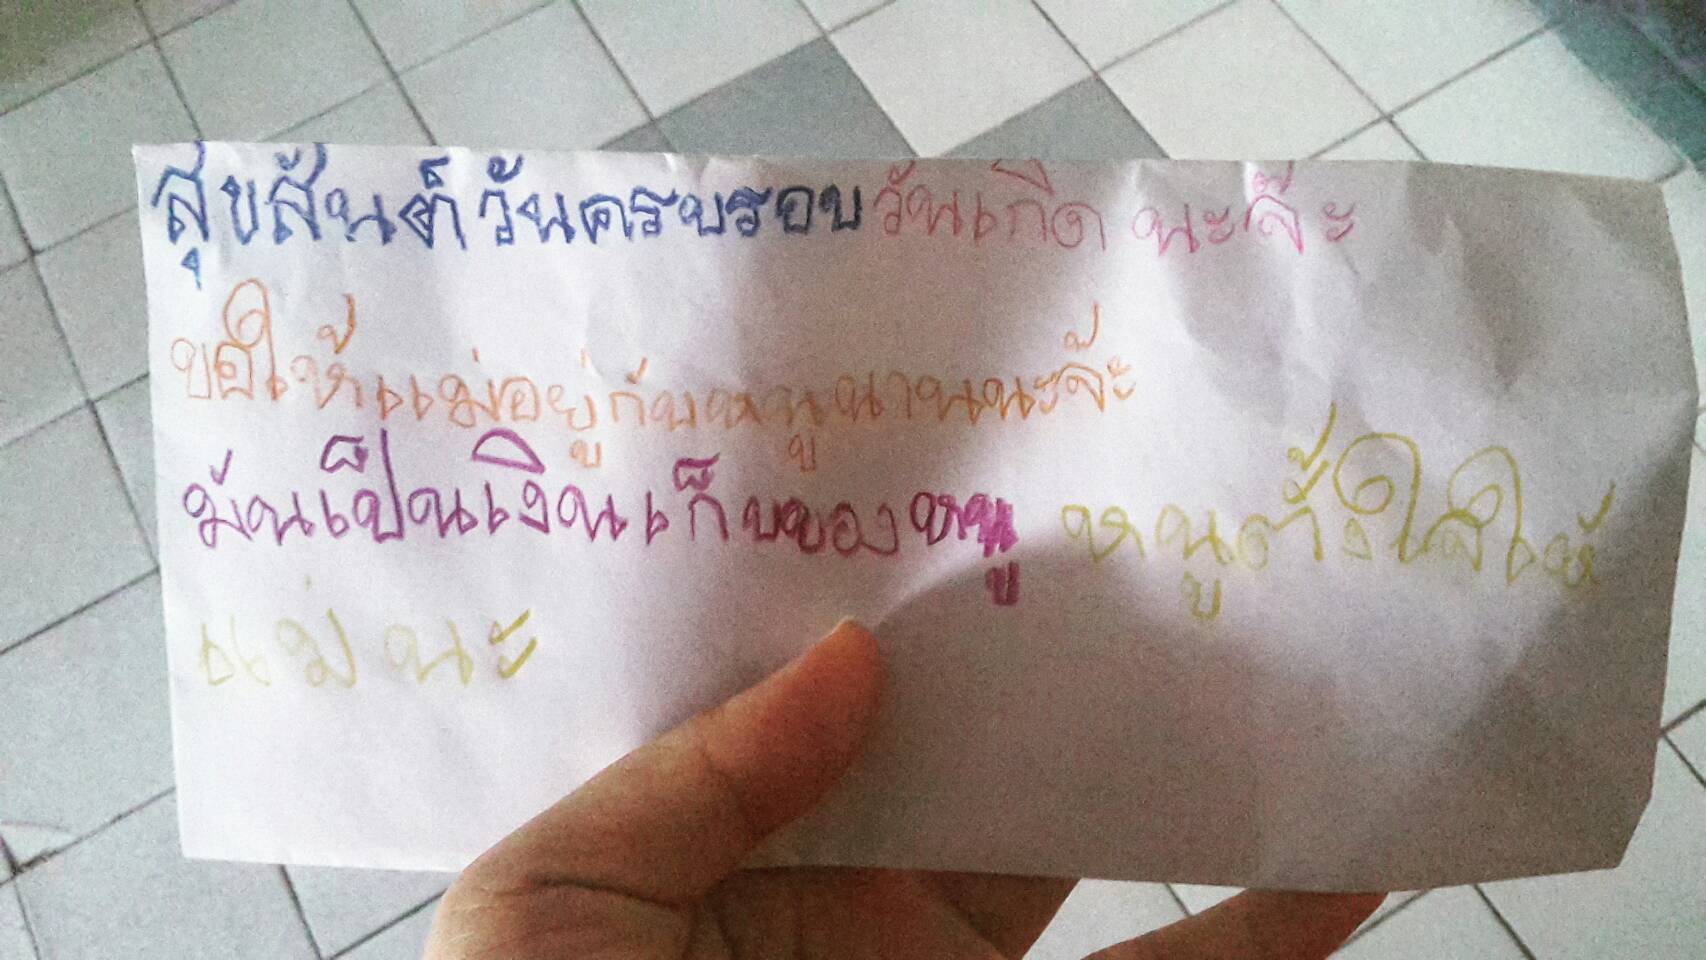 สุขสันต์วันครบรอบวันเกิด นะจ๊ะ
ขอให้แม่อยู่กับหนูนานนะจ๊ะ
มันเป็นเงินเก็บของหนู หนูตั้งใจใส่ให้
แม่ นะ